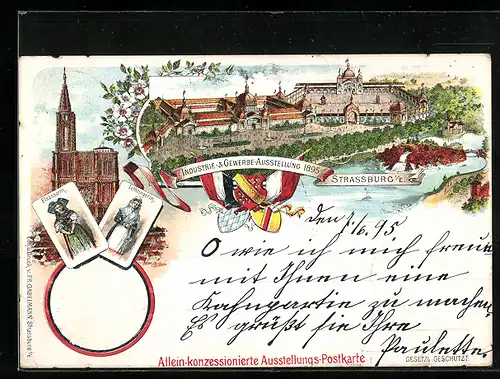 INDUSTRIE-& GEWERBE-AUSSTELLUNG 1895
STRASSBURG i/E.
Elsässerin.
den 1/6. 95
O wie ich mich freue
mit Ihnen eine
Kahnpartie zu machen
Es grüßt sie Ihre
Paulette.
Allein-konzessionierte Ausstellungs-Postkarte
GESETZL. GESCHÜTZT.